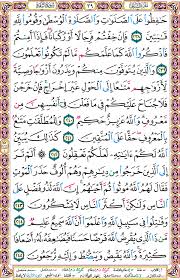 حَٰفِظُوا۟ عَلَى ٱلصَّلَوَٰتِ وَٱلصَّلَوٰةِ ٱلْوُسْطَىٰ وَقُومُوا۟ لِلَّهِ
قَٰنِتِينَ ٢٣٨ فَإِنْ خِفْتُمْ فَرِجَالًا أَوْ رُكْبَانًا فَإِذَآ أَمِنتُمْ
فَٱذْكُرُوا۟ ٱللَّهَ كَمَا عَلَّمَكُم مَّا لَمْ تَكُونُوا۟ تَعْلَمُونَ
٢٣٩ وَٱلَّذِينَ يُتَوَفَّوْنَ مِنكُمْ وَيَذَرُونَ أَزْوَٰجًا وَصِيَّةً
لِّأَزْوَٰجِهِم مَّتَٰعًا إِلَى ٱلْحَوْلِ غَيْرَ إِخْرَاجٍ فَإِنْ خَرَجْنَ
فَلَا جُنَاحَ عَلَيْكُمْ فِى مَا فَعَلْنَ فِىٓ أَنفُسِهِنَّ مِن
مَّعْرُوفٍ وَٱللَّهُ عَزِيزٌ حَكِيمٌ ٢٤٠ وَلِلْمُطَلَّقَٰتِ مَتَٰعٌۢ
بِٱلْمَعْرُوفِ حَقًّا عَلَى ٱلْمُتَّقِينَ ٢٤١ كَذَٰلِكَ يُبَيِّنُ
ٱللَّهُ لَكُمْ ءَايَٰتِهِۦ لَعَلَّكُمْ تَعْقِلُونَ ٢٤٢ أَلَمْ تَرَ إِلَى
ٱلَّذِينَ خَرَجُوا۟ مِن دِيَٰرِهِمْ وَهُمْ أُلُوفٌ حَذَرَ ٱلْمَوْتِ
فَقَالَ لَهُمُ ٱللَّهُ مُوتُوا۟ ثُمَّ أَحْيَٰهُمْ إِنَّ ٱللَّهَ لَذُو فَضْلٍ عَلَى
ٱلنَّاسِ وَلَٰكِنَّ أَكْثَرَ ٱلنَّاسِ لَا يَشْكُرُونَ ٢٤٣
وَقَٰتِلُوا۟ فِى سَبِيلِ ٱللَّهِ وَٱعْلَمُوٓا۟ أَنَّ ٱللَّهَ سَمِيعٌ عَلِيمٌ
٢٤٤ مَّن ذَا ٱلَّذِى يُقْرِضُ ٱللَّهَ قَرْضًا حَسَنًا فَيُضَٰعِفَهُۥ لَهُۥٓ
أَضْعَافًا كَثِيرَةً وَٱللَّهُ يَقْبِضُ وَيَبْصُۜطُ وَإِلَيْهِ تُرْجَعُونَ ٢٤٥